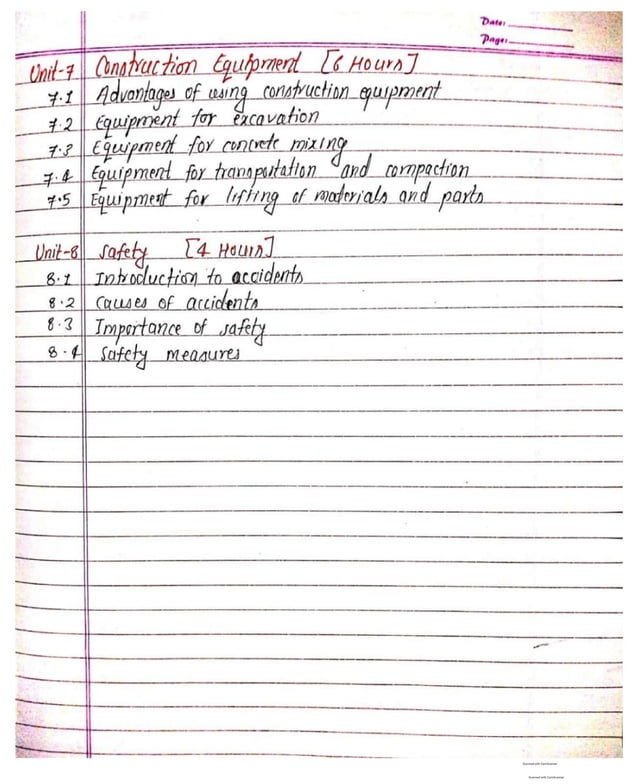 Date:
Page:
Unit-7 Construction Equipment [6 Hours]
7.1 Advantages of using construction equipment
7.2 Equipment for excavation
7.3 Equipment for concrete mixing
7.4 Equipment for transportation and compaction
7.5 Equipment for lifting of materials and parts
Unit-8 Safety [4 Hours]
8.1 Introduction to accidents
8.2 Causes of accidents
8.3 Importance of safety
8.4 Safety measures
Scanned with CamScanner
Scanned with CamScanner